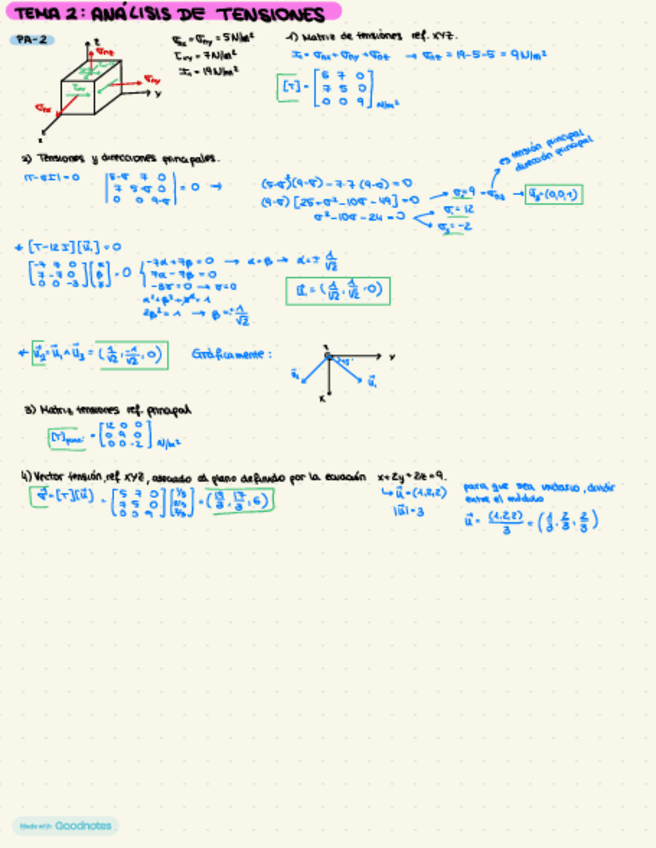 TEMA 2: ANÁLISIS DE TENSIONES
PA-2
z
σnz
σny
σnx
y
x
σnx = σny = 5 N/m²
τxy = 7 N/m²
I₁ = 19 N/m²
1) Matriz de tensiones ref. XYZ.
I₁ = σnx + σny + σnz → σnz = 19-5-5 = 9 N/m²
[T] = [5 7 0
7 5 0
0 0 9] N/m²
2) Tensiones y direcciones principales.
|T-σI| = 0 |5-σ 7 0
7 5-σ 0
0 0 9-σ| = 0 →
(5-σ)²(9-σ) - 7·7 (9-σ) = 0
(9-σ) [25+σ²-10σ-49] = 0
σ²-10σ-24 = 0
σ = 9 = σnz
σ = 12
σ = -2
es tensión principal
dirección principal
→ u₃ = (0,0,1)
* [T-12I][u₁] = 0
[-7 7 0
7 -7 0
0 0 -3] [α
β
γ] = 0
-7α+7β = 0 → α=β → α = ± 1/√2
7α-7β = 0
-3γ = 0 → γ = 0
α²+β²+γ² = 1
2β² = 1 → β = ± 1/√2
u₁ = (1/√2, 1/√2, 0)
* u₂ = u₁ ∧ u₃ = (1/√2, -1/√2, 0)
Gráficamente:
z
y
45°
u₂
u₁
x
3) Matriz tensiones ref. principal
[T]princ. = [12 0 0
0 9 0
0 0 -2] N/m²
4) Vector tensión, ref XYZ, asociado al plano definido por la ecuación x+2y+2z=9.
σ = [T][u] = [5 7 0
7 5 0
0 0 9] [1/3
2/3
2/3] = (19/3, 17/3, 6)
↳ u = (1,2,2)
|u| = 3
para que sea unitario, dividir
entre el módulo
u = (1,2,2)/3 = (1/3, 2/3, 2/3)
Made with Goodnotes